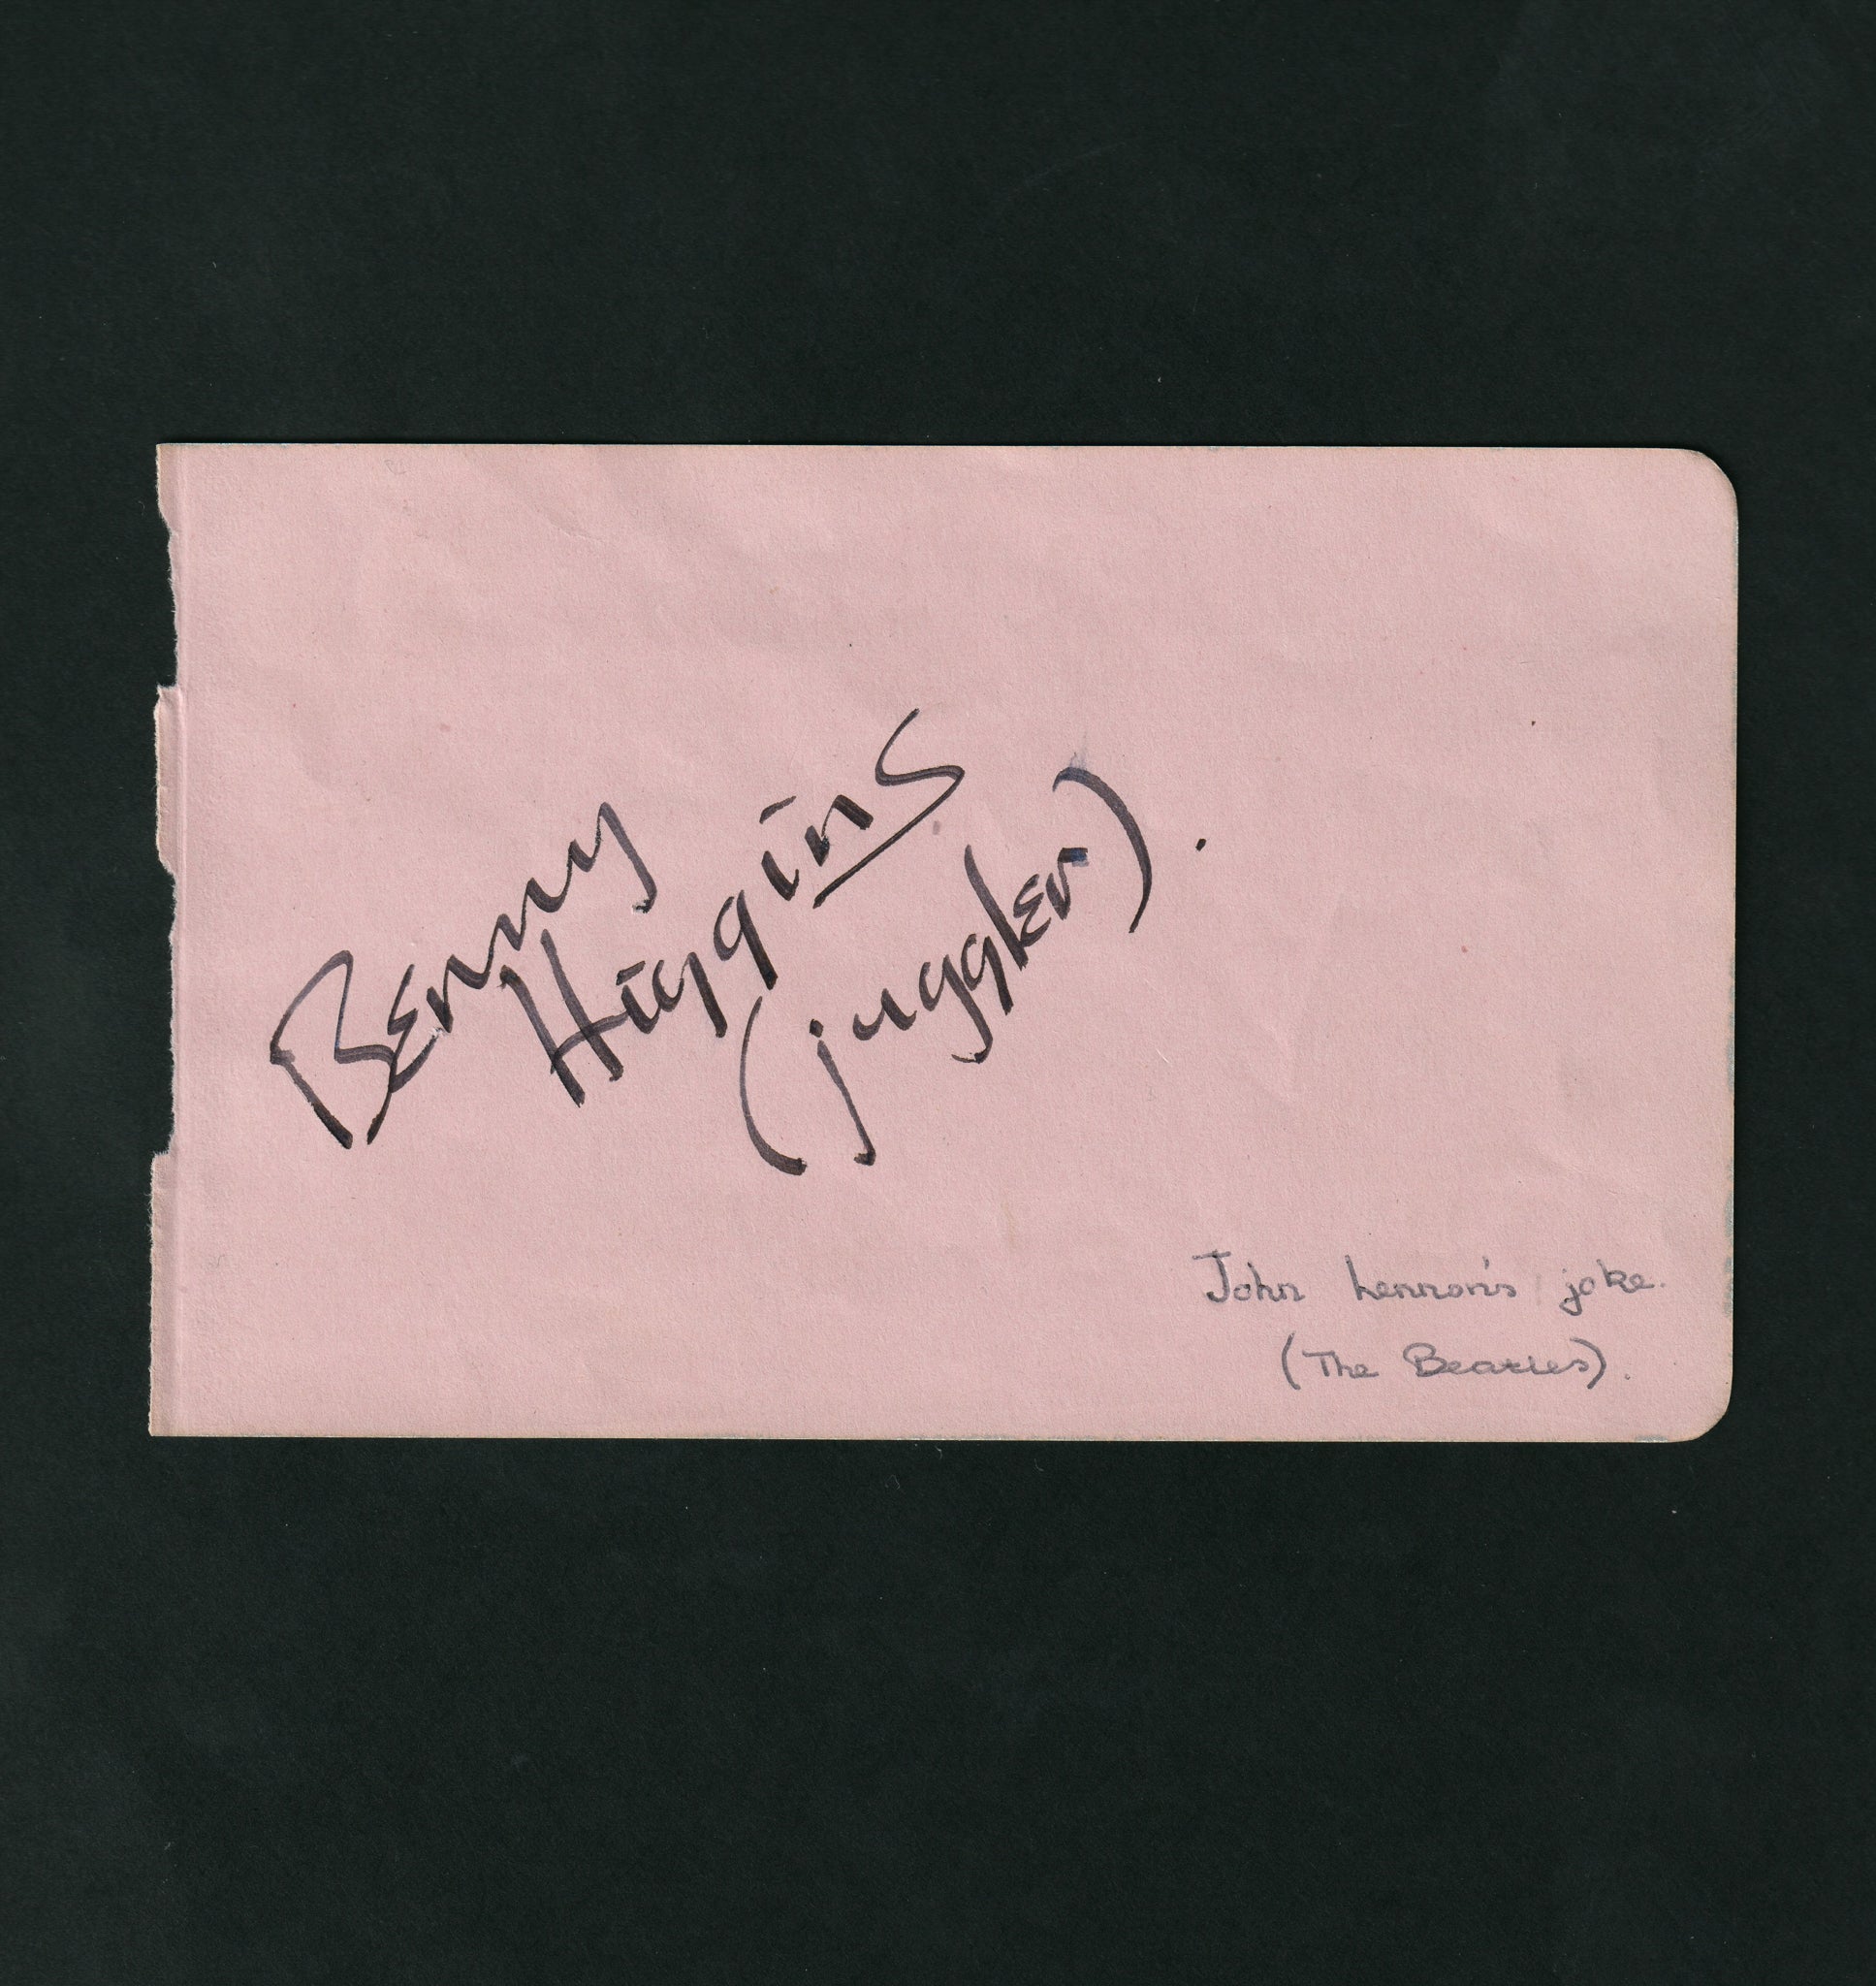 Benny
Higgins
(juggler).
John Lennon's joke.
(The Beatles).